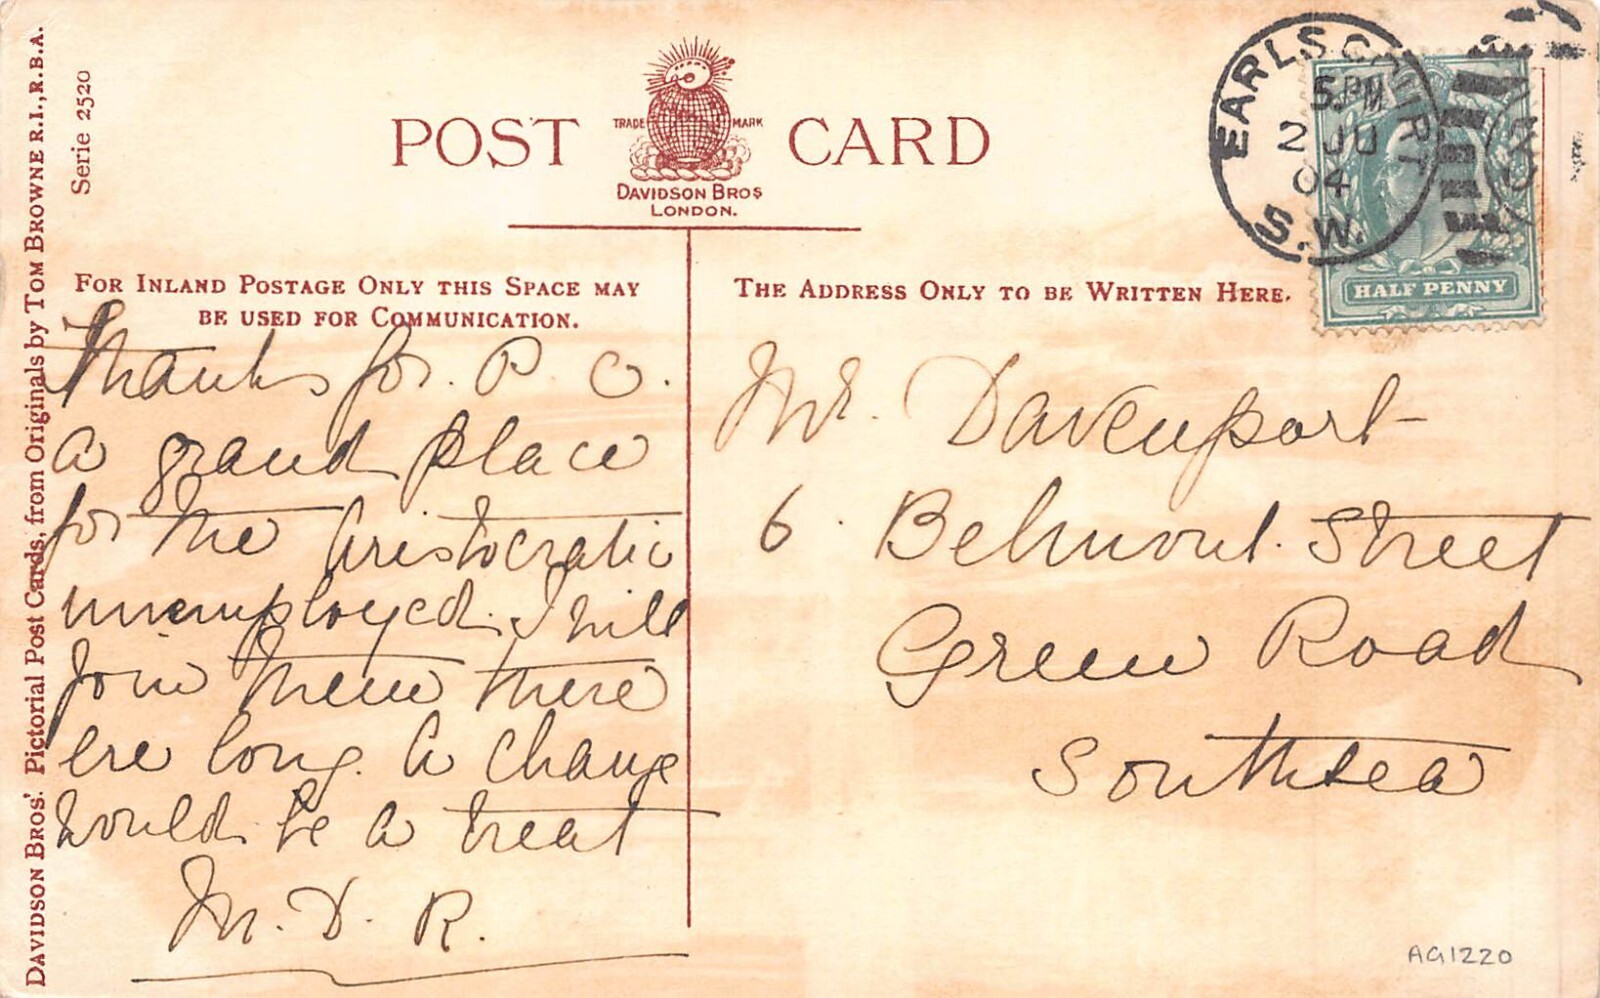 DAVIDSON BROS'. Pictorial Post Cards, from Originals by TOM BROWNE R.I., R.B.A.
Serie 2520
POST CARD
TRADE MARK
DAVIDSON BROS
LONDON.
FOR INLAND POSTAGE ONLY THIS SPACE MAY
BE USED FOR COMMUNICATION.
Thanks for P. C.
A grand place
for the Aristocratic
unemployed. I will
join them there
ere long. A change
would be a treat
M. D. R.
THE ADDRESS ONLY TO BE WRITTEN HERE.
EARLS COURT
5. PM
2 JU
04
S.W.
HALF PENNY
Mr. Davenport
6. Belmont Street
Green Road
Southsea
AG1220